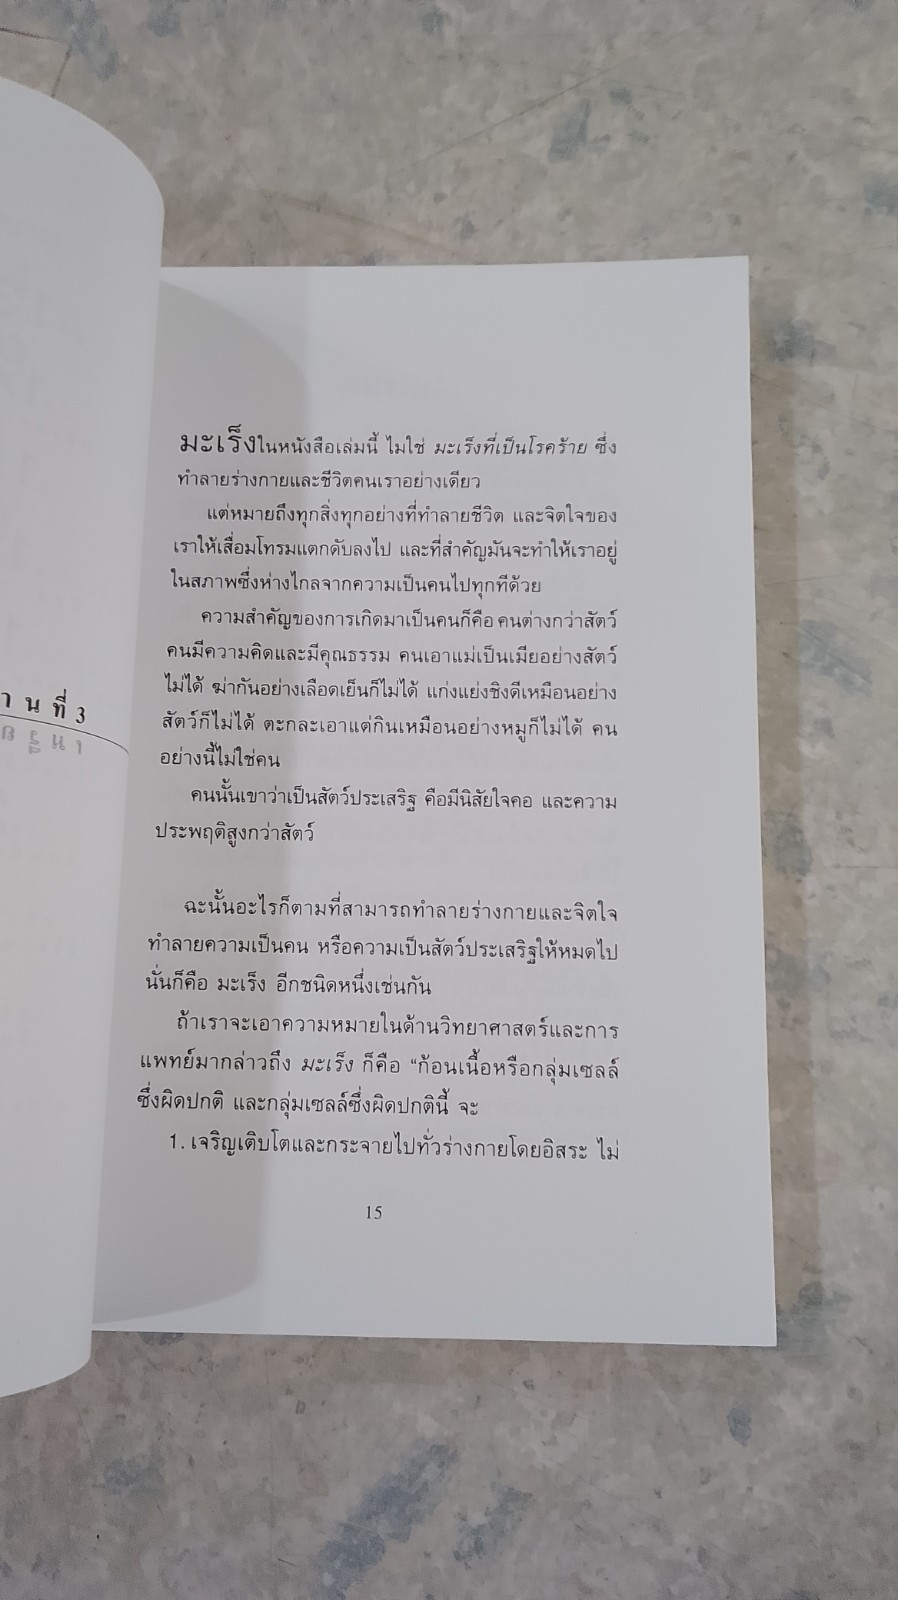 า น ที่ 3
มะเร็งในหนังสือเล่มนี้ ไม่ใช่ มะเร็งที่เป็นโรคร้าย ซึ่ง
ทำลายร่างกายและชีวิตคนเราอย่างเดียว
แต่หมายถึงทุกสิ่งทุกอย่างที่ทำลายชีวิต และจิตใจของ
เราให้เสื่อมโทรมแตกดับลงไป และที่สำคัญมันจะทำให้เราอยู่
ในสภาพซึ่งห่างไกลจากความเป็นคนไปทุกทีด้วย
ความสำคัญของการเกิดมาเป็นคนก็คือ คนต่างกว่าสัตว์
คนมีความคิดและมีคุณธรรม คนเอาแม่เป็นเมียอย่างสัตว์
ไม่ได้ ฆ่ากันอย่างเลือดเย็นก็ไม่ได้ แก่งแย่งชิงดีเหมือนอย่าง
สัตว์ก็ไม่ได้ ตะกละเอาแต่กินเหมือนอย่างหมูก็ไม่ได้ คน
อย่างนี้ไม่ใช่คน
คนนั้นเขาว่าเป็นสัตว์ประเสริฐ คือมีนิสัยใจคอ และความ
ประพฤติสูงกว่าสัตว์
ฉะนั้นอะไรก็ตามที่สามารถทำลายร่างกายและจิตใจ
ทำลายความเป็นคน หรือความเป็นสัตว์ประเสริฐให้หมดไป
นั่นก็คือ มะเร็ง อีกชนิดหนึ่งเช่นกัน
ถ้าเราจะเอาความหมายในด้านวิทยาศาสตร์และการ
แพทย์มากล่าวถึง มะเร็ง ก็คือ "ก้อนเนื้อหรือกลุ่มเซลล์
ซึ่งผิดปกติ และกลุ่มเซลล์ซึ่งผิดปกตินี้ จะ
1. เจริญเติบโตและกระจายไปทั่วร่างกายโดยอิสระ ไม่
15